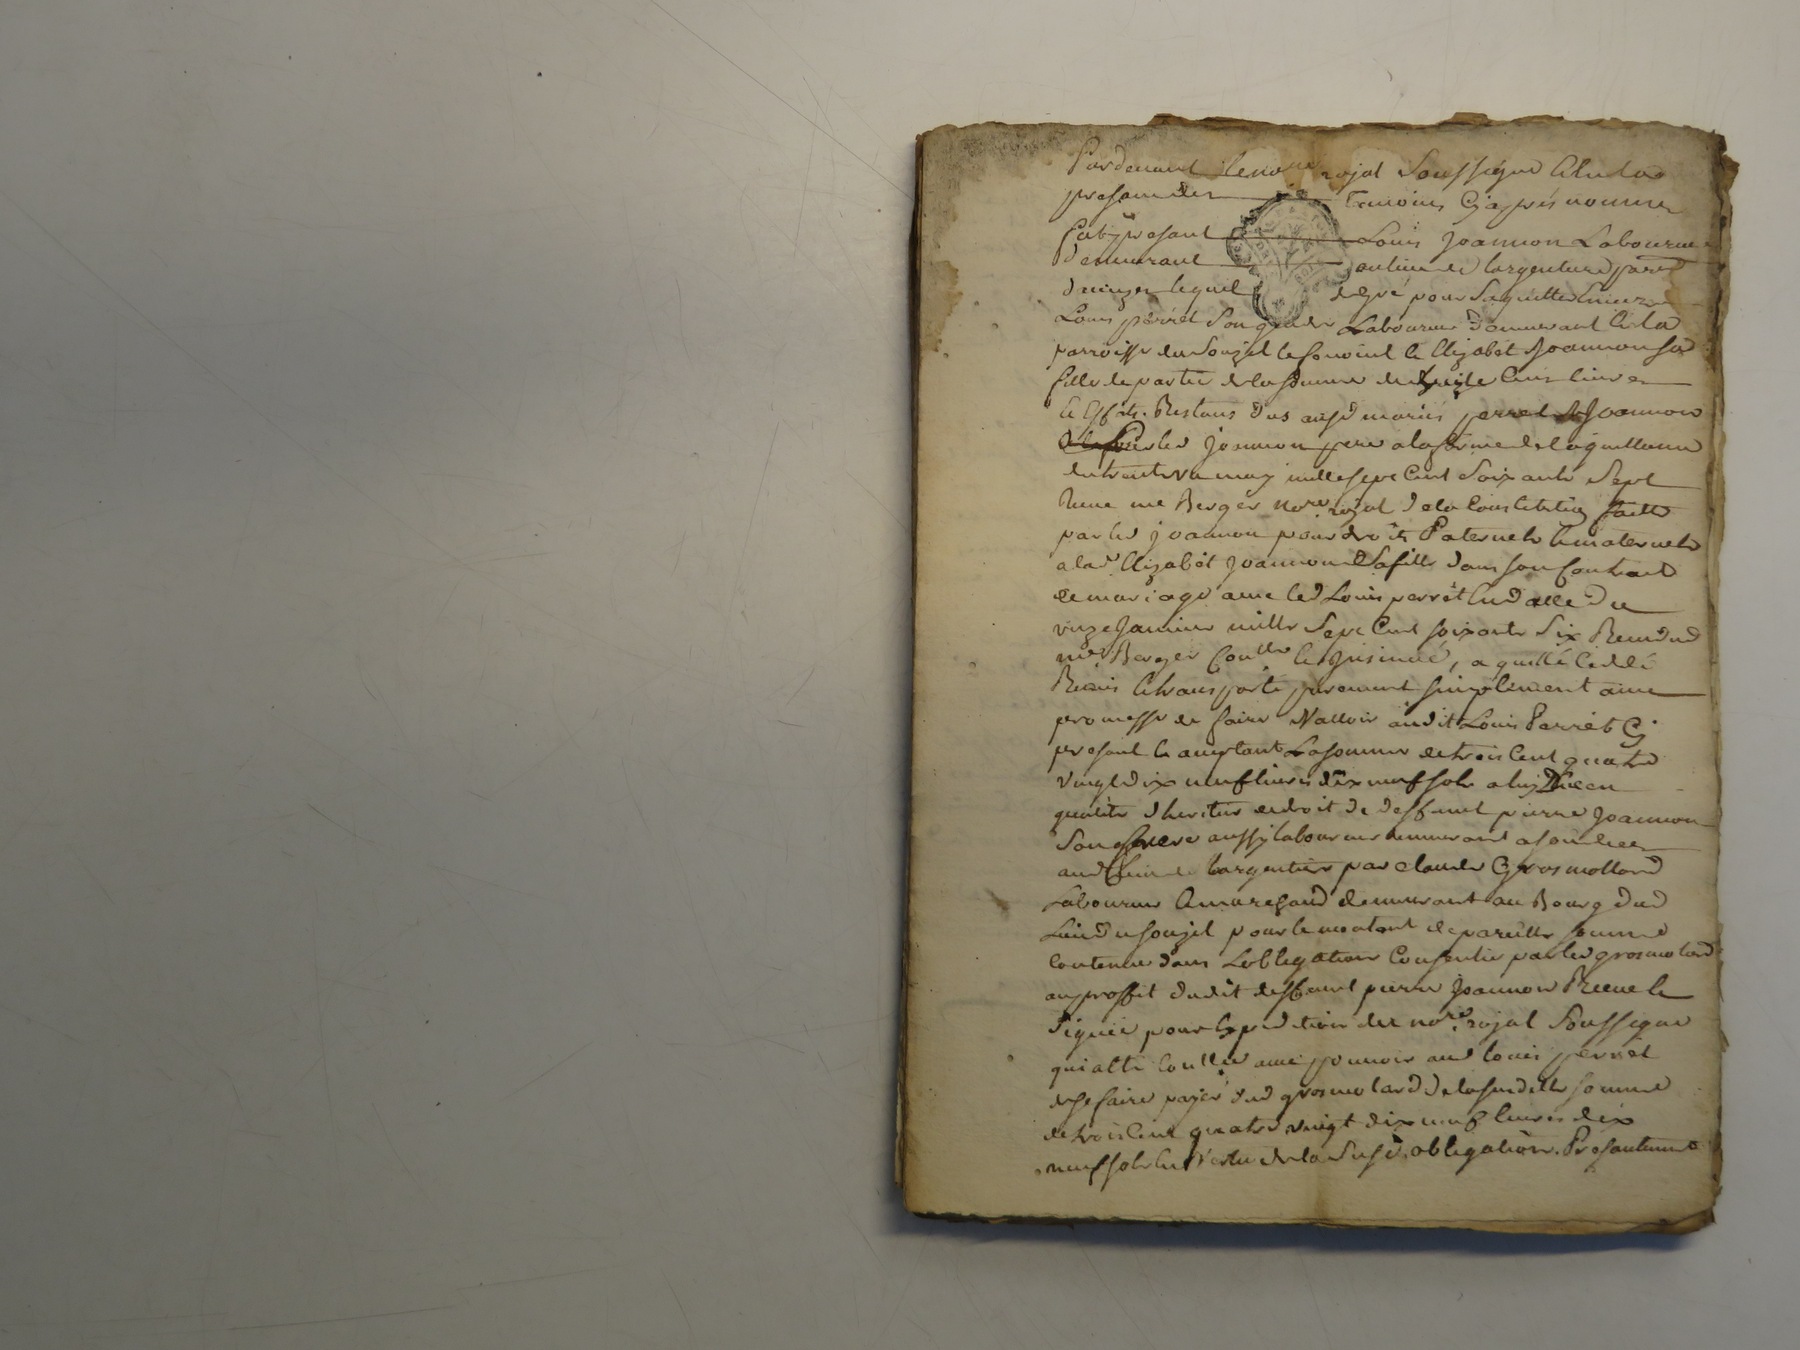 Pardevant le no.re royal Soussigné & en la
presence des Temoins Cy aprés nommes
fut present Louis Joannon Laboureur
demeurant au lieu de largentiere paroisse
lequel de gré pour Saquitter Envers
Louis perret Son gendre Laboureur demeurant En la
parroisse du Souzel le sonoint & Elizabet Joannon sa
fille de partie de la Somme de treize Cens livres
& Effets. Restans dus ausd mariés perret & Joannon
par led Joannon pere a la forme de la quittance
du trente un may mille sept Cent Soixante Sept
Reçue me Berger no.re royal de la Constitution faitte
par led joannon pour droits Paternels & maternels
a lad. Elizabét Joannon Sa fille dans son Contract
de mariage avec led Louis perrét En datte du
unze Janvier mille Sept Cent soixante Six Reçu dud
me Berger Conllé & Insinué, a quitté Ceddé
Remis & transporté purement simplement avec
promesse de faire Valloir audit Louis Perrét Cy
present & aceptant La somme de trois Cent quatre
vingt dix neuf livres dix neuf sols a luy Due en
qualité d heritier de droit de deffunt pierre Joannon
Son frere aussy laboureur demeurant
aud lieu de largentiere par claude Grosmollard
Laboureur & marechand demeurant au Bourg dud
Lieu du Souzel pour le montant de pareille somme
Contenue dans Lobligation Consentie par led grosmolard
au proffit dudit deffunt pierre Joannon Recue &
Signée pour Expedition du no.re royal Soussigné
qui a été Conllée avec pouvoir aud louis perrét
de se faire payer dud grosmolard de la susditte somme
de trois Cent quatre vingt dix neuf livres dix
neuf sols En Vertu de la Susd. obligation. Presentement